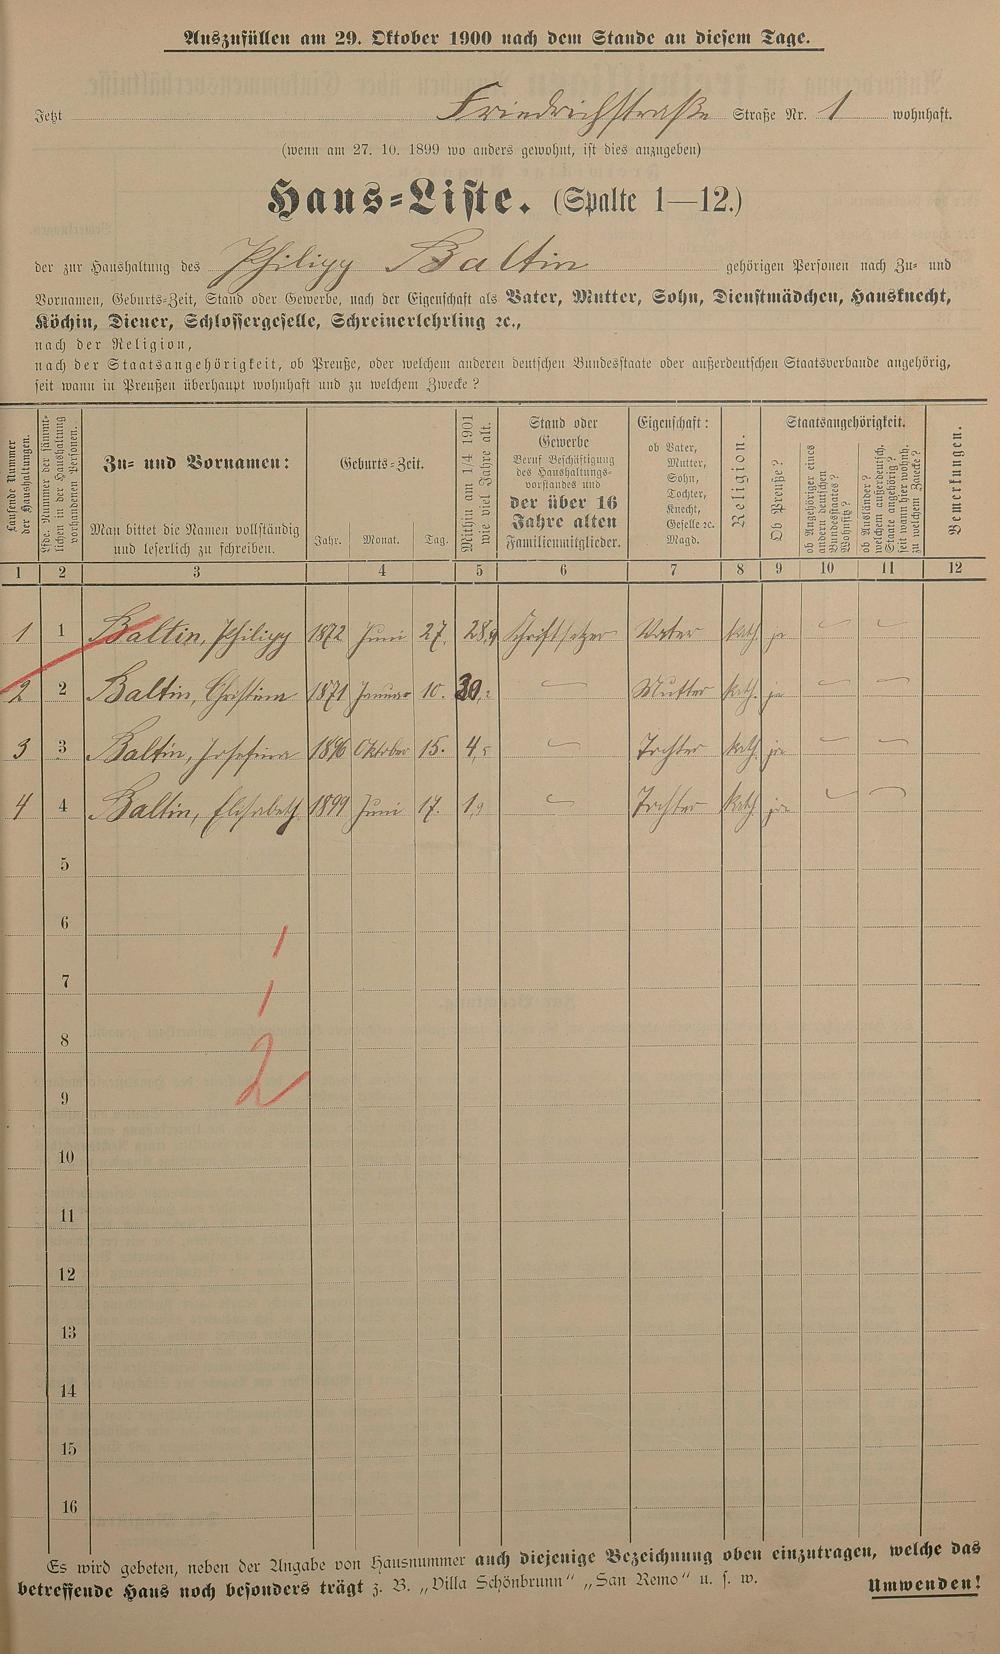 Auszufüllen am 29. Oktober 1900 nach dem Stande an diesem Tage.
Jetzt Friedrichstraße Straße Nr. 1 wohnhaft.
(wenn am 27. 10. 1899 wo anders gewohnt, ist dies anzugeben)
Haus-Liste. (Spalte 1—12.)
der zur Haushaltung des Philipp Baltin gehörigen Personen nach Zu- und
Vornamen, Geburts-Zeit, Stand oder Gewerbe, nach der Eigenschaft als Vater, Mutter, Sohn, Dienstmädchen, Hausknecht,
Köchin, Diener, Schlossergeselle, Schreinerlehrling ꝛc.,
nach der Religion,
nach der Staatsangehörigkeit, ob Preuße, oder welchem anderen deutschen Bundesstaate oder außerdeutschen Staatsverbande angehörig,
seit wann in Preußen überhaupt wohnhaft und zu welchem Zwecke?
Laufende Nummer
der Haushaltungen.
Lfde. Nummer der sämmt-
lichen in der Haushaltung
vorhandenen Personen.
Zu- und Vornamen:
Man bittet die Namen vollständig
und leserlich zu schreiben.
Geburts-Zeit.
Jahr. Monat. Tag.
Mithin am 1/4 1901
wie viel Jahre alt.
Stand oder
Gewerbe
Beruf Beschäftigung
des Haushaltungs-
vorstandes und
der über 16
Jahre alten
Familienmitglieder.
Eigenschaft:
ob Vater,
Mutter,
Sohn,
Tochter,
Knecht,
Geselle ꝛc.
Magd.
Religion.
Staatsangehörigkeit.
Ob Preuße?
ob Angehöriger eines
andern deutschen
Bundesstaates?
Wohnsitz?
ob Ausländer?
welchem außerdeutsch.
Staate angehörig?
seit wann hier wohnh.
zu welchem Zwecke?
Bemerkungen.
1 2 3 4 5 6 7 8 9 10 11 12
1 1 Baltin, Philipp 1872 Juni 27. 28,9 Schriftsetzer Vater kath. ja — —
2 2 Baltin, Christina 1871 Januar 10. 30,2 — Mutter kath. ja — —
3 3 Baltin, Josefina 1896 Oktober 15. 4,5 — Tochter kath. ja — —
4 4 Baltin, Elisabeth 1899 Juni 17. 1,9 — Tochter kath. ja — —
5
6
7
8
9
10
11
12
13
14
15
16
1
1
2
Es wird gebeten, neben der Angabe von Hausnummer auch diejenige Bezeichnung oben einzutragen, welche das
betreffende Haus noch besonders trägt z. B. „Villa Schönbrunn" „San Remo" u. s. w.
Umwenden!